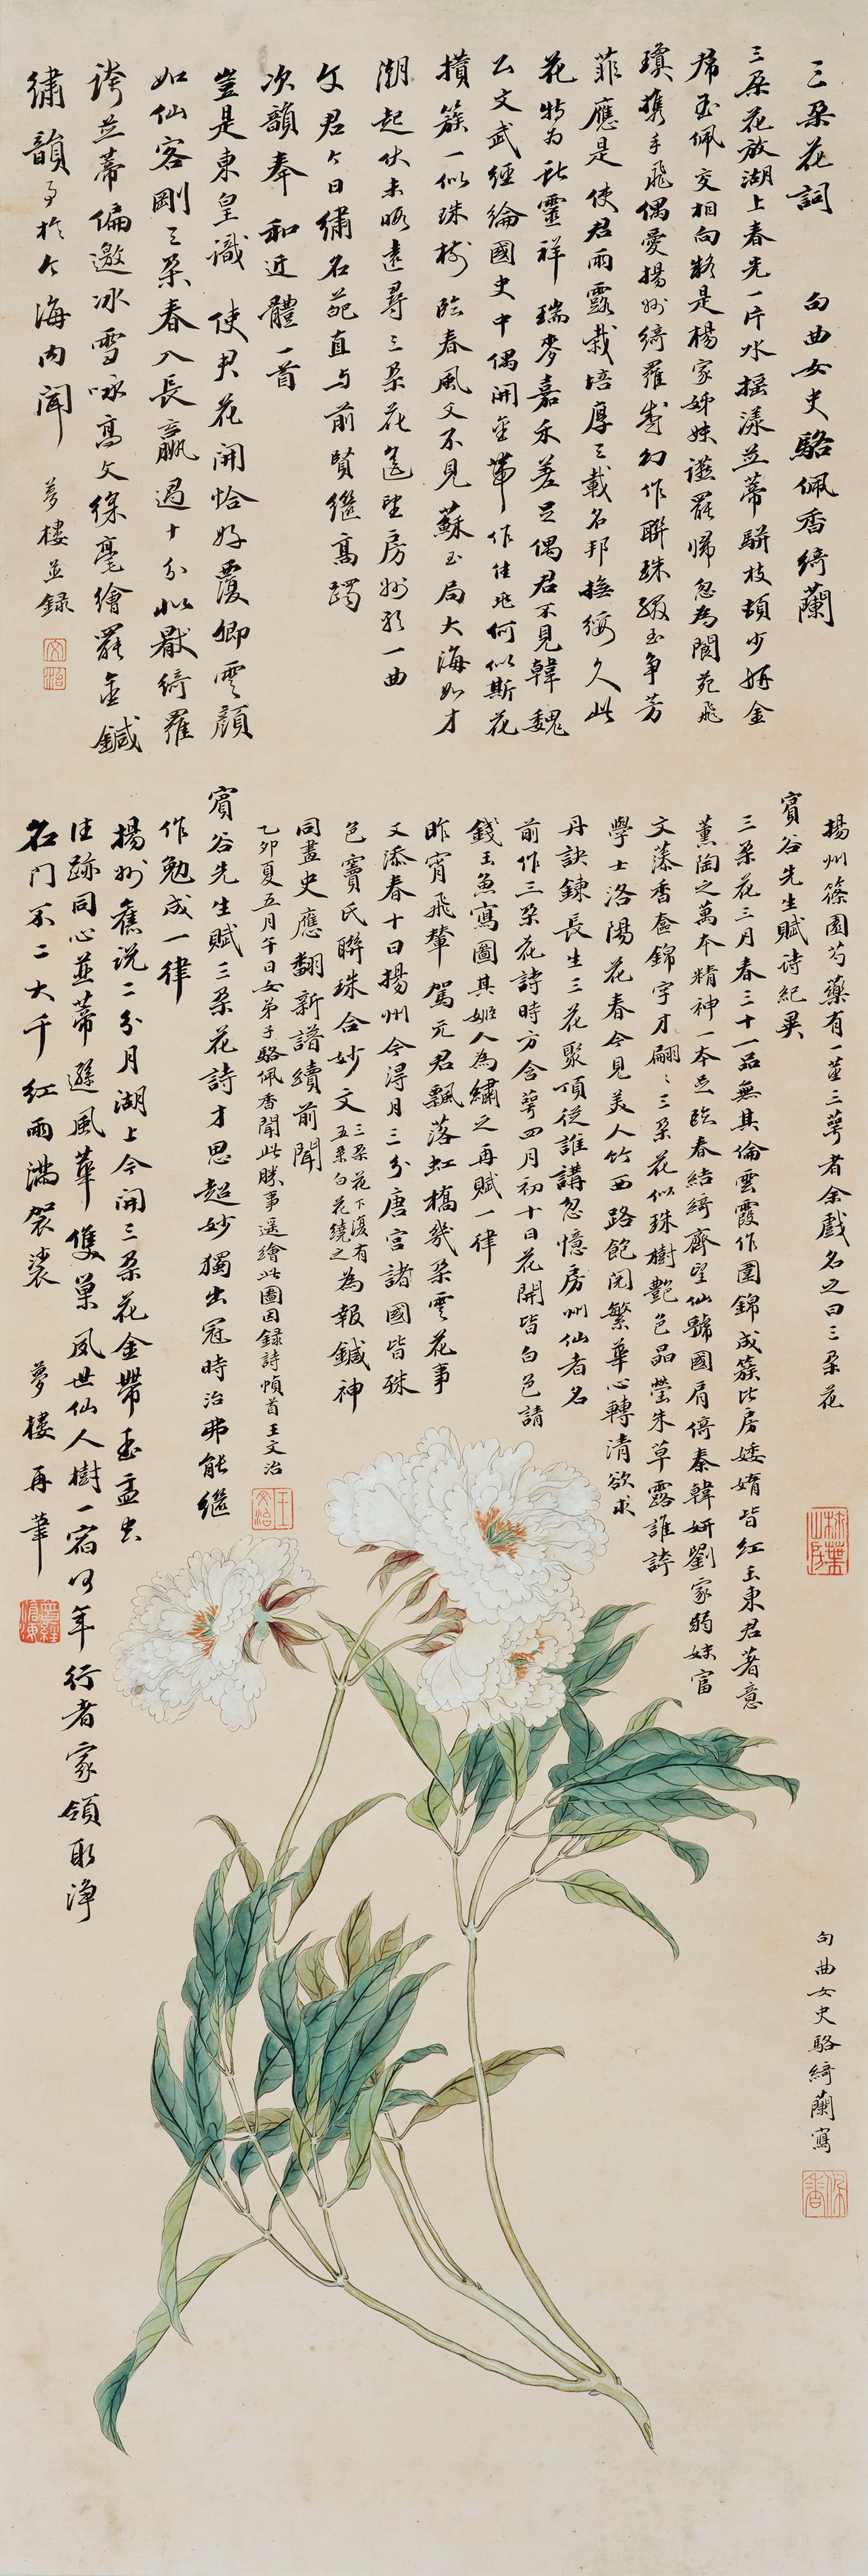 三朵花詞　句曲女史駱佩香綺蘭
三朵花放湖上春先一片水搖漾並蒂駢枝頭少妍金
帶玉佩交相向疑是楊家姊妹讌罷歸忽為閬苑飛
瓊攜手飛偶愛揚州綺羅叢幻作聯珠綴玉爭芳
菲應是使君雨露栽培厚三載名邦撫綏久此
花特為獻靈祥瑞麥嘉禾差足偶君不見韓魏
公文武經綸國史中偶開金帶作佳兆何似斯花
攢簇一似珠樹臨春風又不見蘇玉局大海如才
潮起伏未晤遠尋三朵花遙望房州歌一曲
文君今日繡名葩直與前賢繼高躅
次韻奉和近體一首
豈是東皇識使君花開恰好覆卿雲顏
如仙客剛三朵春入長贏過十分似厭綺羅
誇並蒂偏邀冰雪咏高文綵毫繪罷金鍼
繡韻事於今海內聞　夢樓並錄
揚州篠園芍藥有一莖三萼者余戲名之曰三朵花
賓谷先生賦詩紀異
三朵花三月春三十一品無其倫雲霞作圍錦成簇比房婑媠皆紅玉東君著意
薰陶之萬本精神一本足臨春結綺齊望仙虢國肩倚秦韓妍劉家弱妹富
文藻香奩錦字才翩翩三朵花似珠樹艷色晶瑩朱草露誰誇
學士洛陽花春今見美人竹西路飽閱繁華心轉清欲求
丹訣鍊長生三花聚頂從誰講忽憶房州仙者名
前作三朵花詩時方含萼四月初十日花開皆白色請
錢玉魚寫圖其姬人為繡之再賦一律
昨宵飛輦駕元君飄落虹橋幾朵雲花事
又添春十日揚州今得月三分唐宮諸國皆殊
色竇氏聯珠合妙文三朵花下復有五朵白花繞之為報鍼神
同畫史應翻新譜續前聞
乙卯夏五月午日女弟子駱佩香聞此勝事遙繪此圖因錄詩幀首王文治
賓谷先生賦三朵花詩才思超妙獨出冠時治弗能繼
作勉成一律
揚州舊說二分月湖上今開三朵花金帶玉盂出
佳跡同心並蒂遜風華隻巢夙世仙人樹一宿何年行者家領取淨
名門不二大千紅雨滿袈裟　夢樓再筆
句曲女史駱綺蘭寫
王文治